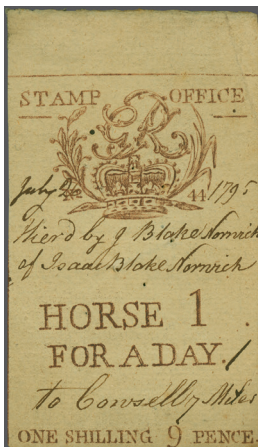 STAMP OFFICE
GR
July 44 1795
Hier'd by J Blake Norwich
of Isaac Blake Norwich
HORSE 1
FOR A DAY.
to Cowsell 7 Miles
ONE SHILLING 9 PENCE.